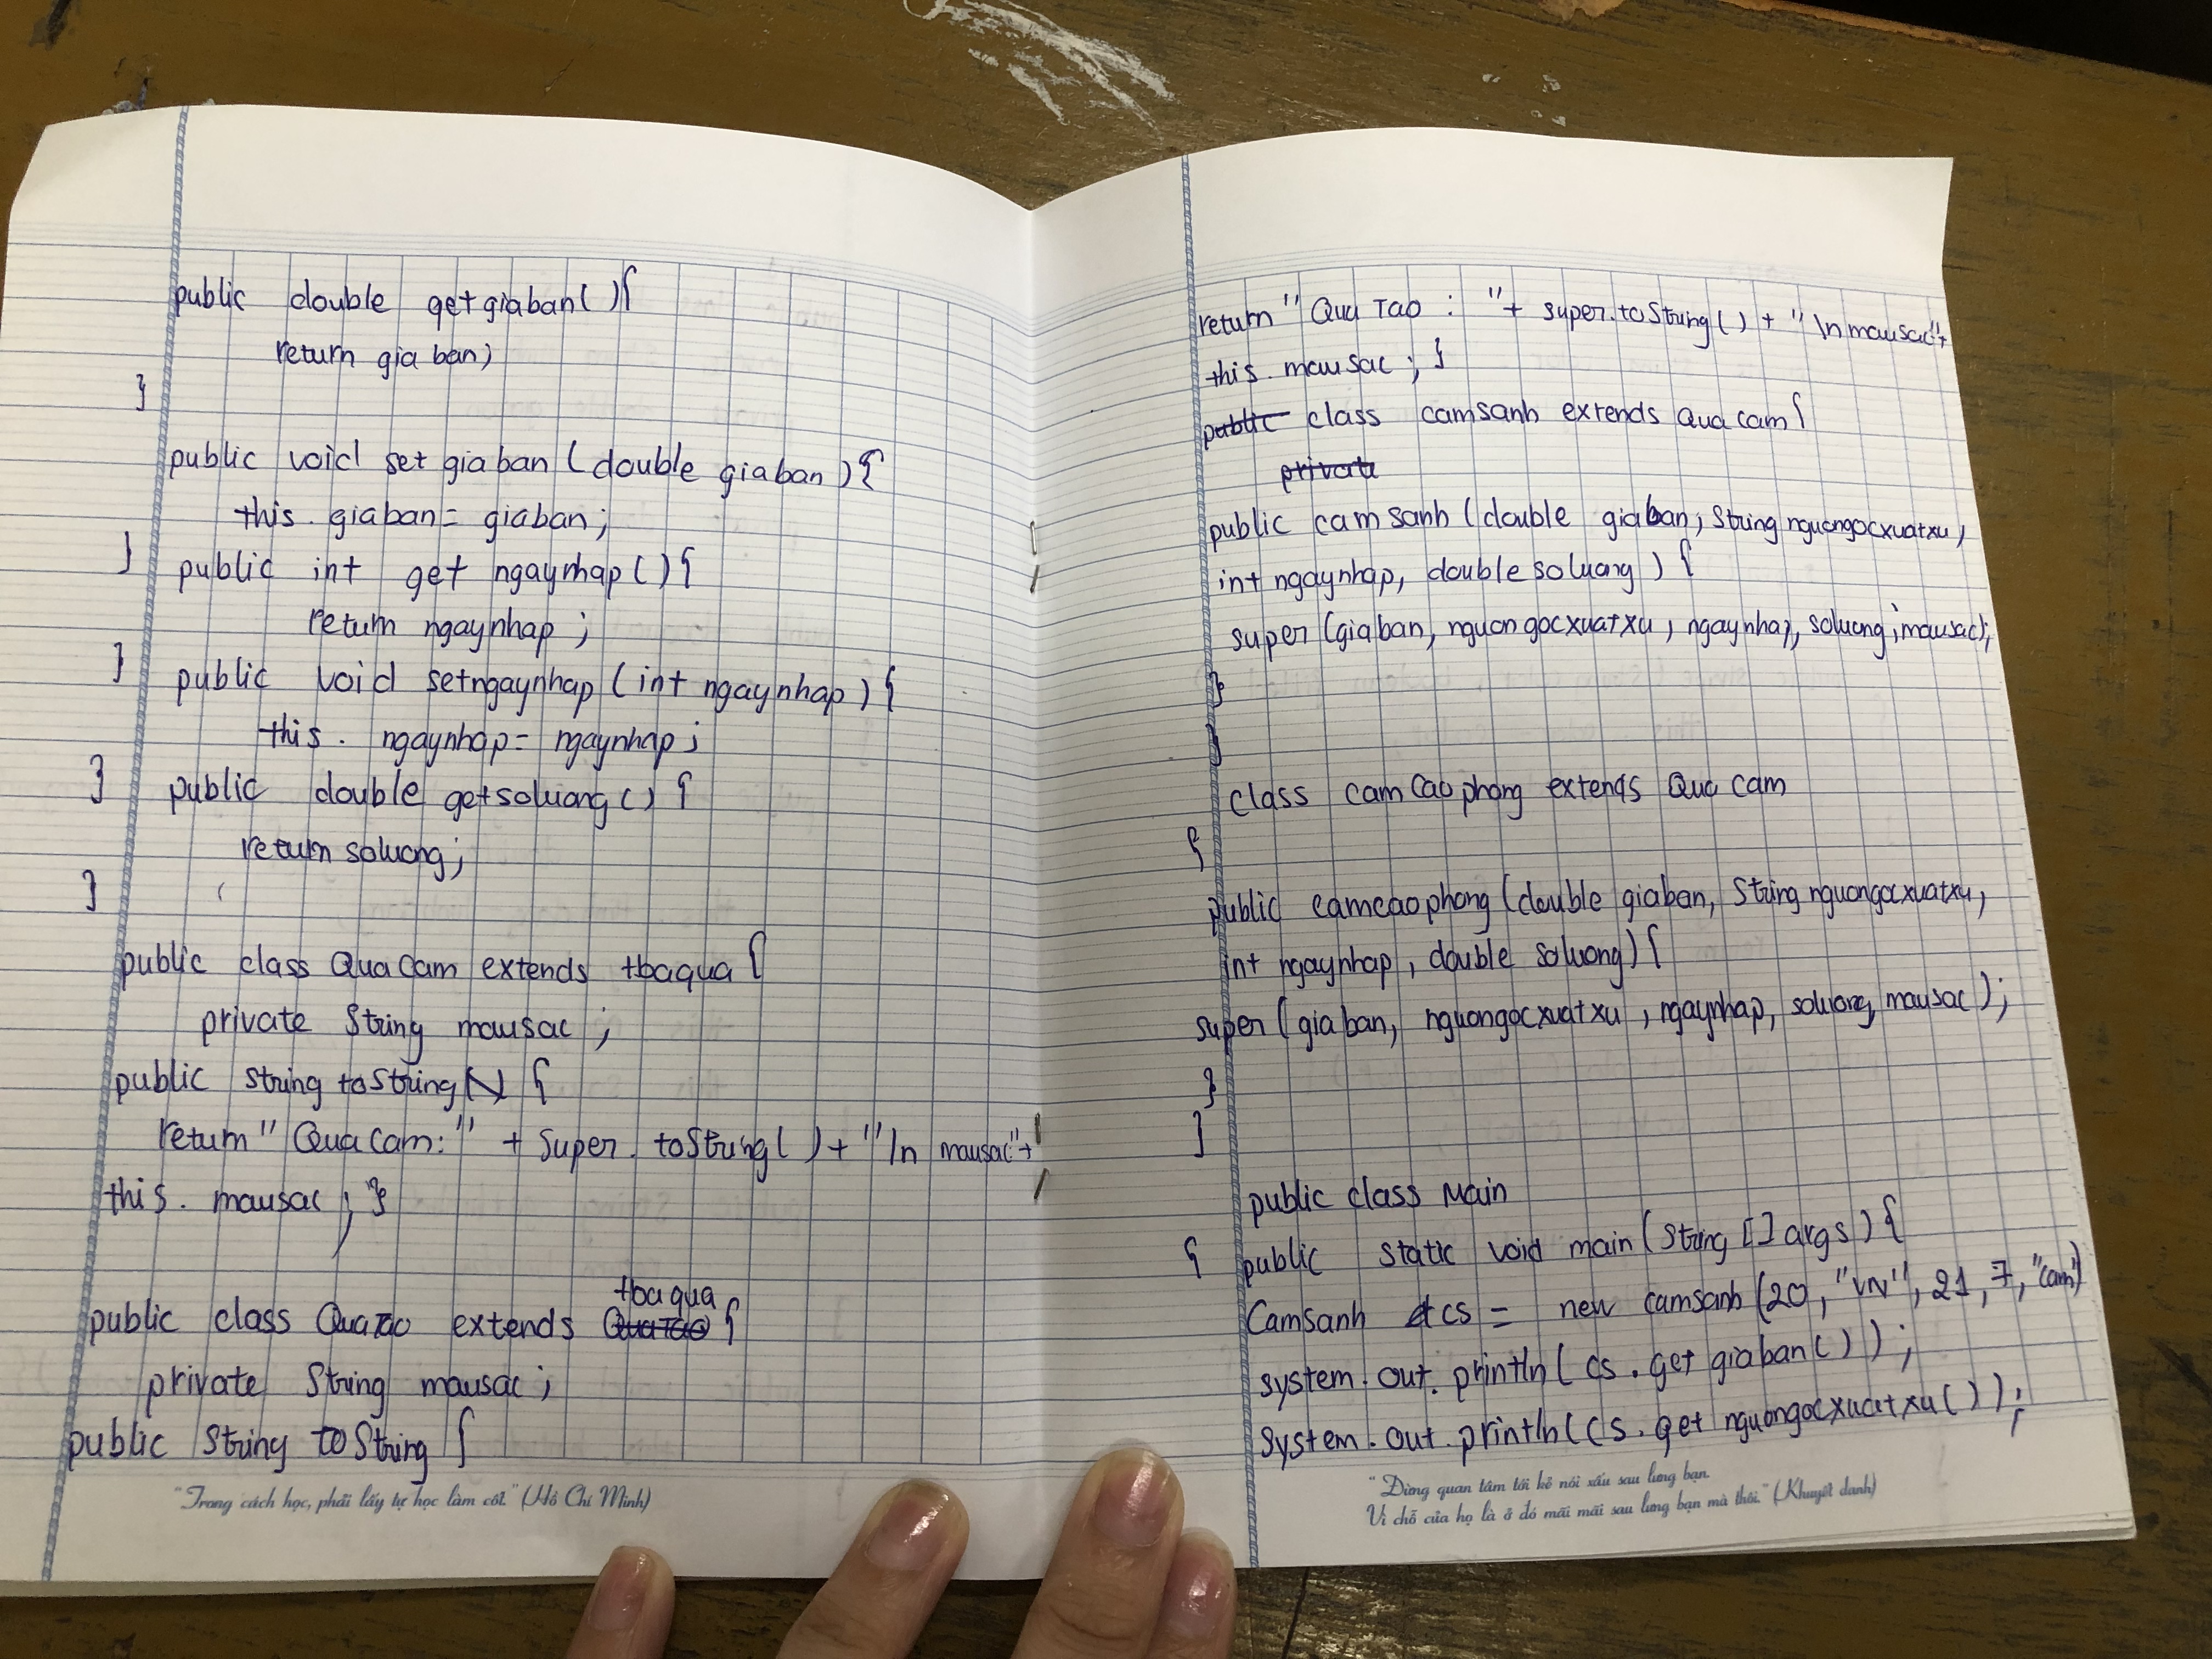 public double getgiaban(){
return giaban)
}
public void setgiaban(double giaban){
this.giaban=giaban;
}
public int get ngaynhap(){
return ngaynhap;
}
public void setngaynhap(int ngaynhap){
this.ngaynhap=ngaynhap;
}
public double getsoluong(){
return soluong;
}
public class Quacam extends tbaqua{
private String mausac;
public string toString(){
return "Quacam:" + super.toString()+"\n mausac:"+
this.mausac;}
public class Quatao extends tbaqua{
private String mausac;
public String toString{
"Trong cách học, phải lấy tự học làm cốt" (Hồ Chí Minh)
return "Qua Tao : "+ super.toString()+"\nmausac:"+
this mausac;}
public class camsanh extends Quacam{
private
public camsanh(double giaban, String nguongocxuatxu,
int ngaynhap, double soluong){
super(giaban, nguongocxuatxu, ngaynhap, soluong, mausac);
}
}
class camcaophong extends Quacam
{
public camcaophong(double giaban, String nguongocxuatxu,
int ngaynhap, double soluong){
super(giaban, nguongocxuatxu, ngaynhap, soluong, mausac);
}
}
public class Main
{
public static void main(String[] args){
Camsanh cs= new camsanh(20, "VN", 21, 7, "cam")
system.out.println(cs.get giaban());
System.out.println(cs.get nguongocxuatxu());
"Đừng quan tâm tới kẻ nói xấu sau lưng bạn.
Vì chỗ của họ là ở đó mãi mãi sau lưng bạn mà thôi" (Khuyết danh)